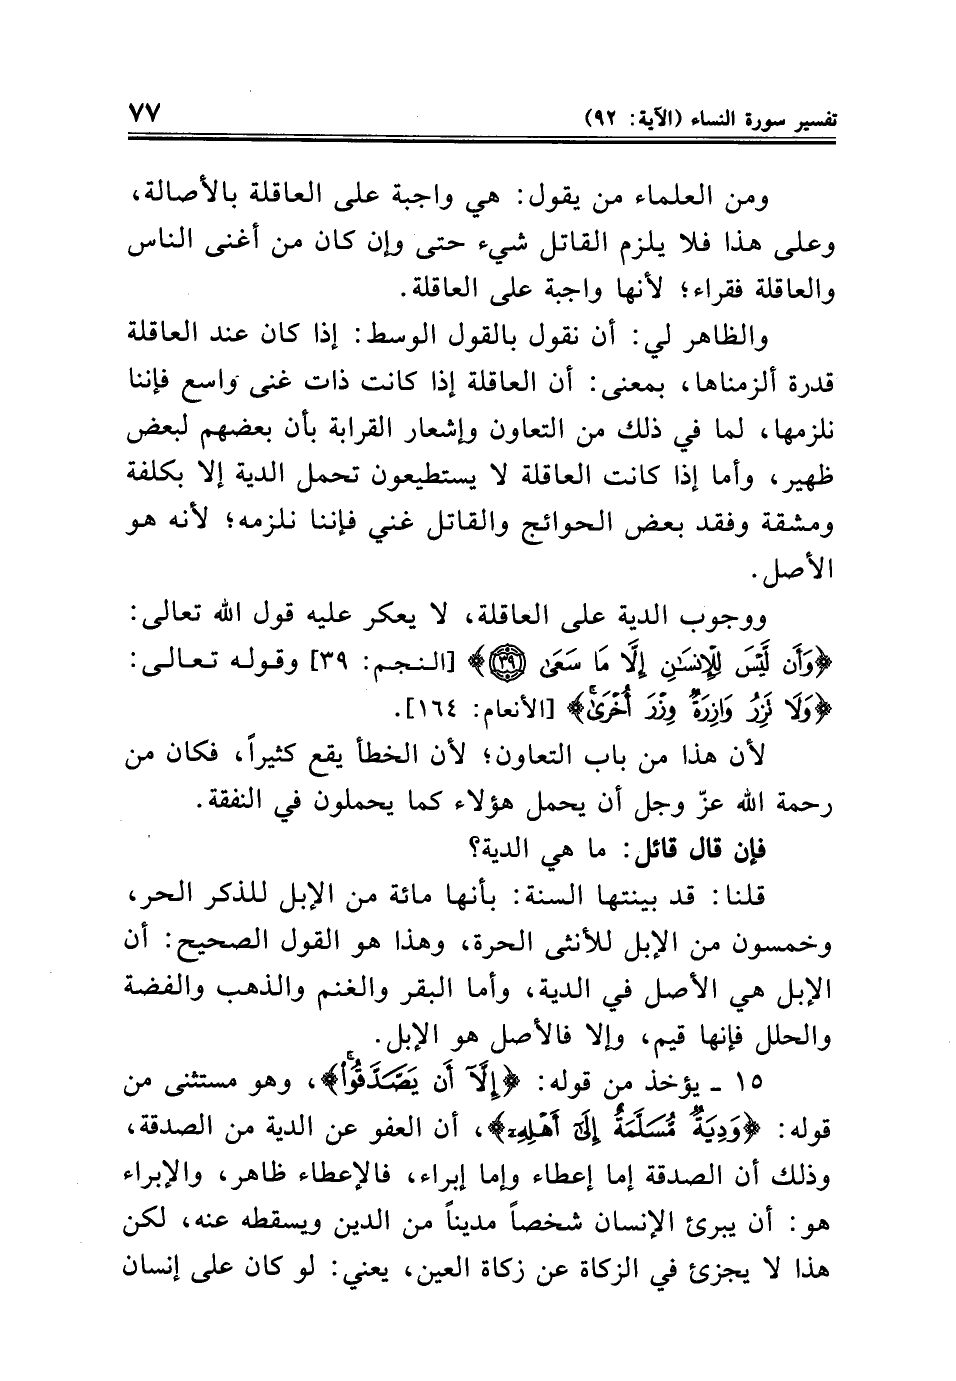 تفسير سورة النساء (الآية: ٩٢) ٧٧
ومن العلماء من يقول: هي واجبة على العاقلة بالأصالة،
وعلى هذا فلا يلزم القاتل شيء حتى وإن كان من أغنى الناس
والعاقلة فقراء؛ لأنها واجبة على العاقلة.
والظاهر لي: أن نقول بالقول الوسط: إذا كان عند العاقلة
قدرة ألزمناها، بمعنى: أن العاقلة إذا كانت ذات غنى واسع فإننا
نلزمها، لما في ذلك من التعاون وإشعار القرابة بأن بعضهم لبعض
ظهير، وأما إذا كانت العاقلة لا يستطيعون تحمل الدية إلا بكلفة
ومشقة وفقد بعض الحوائج والقاتل غني فإننا نلزمه؛ لأنه هو
الأصل.
ووجوب الدية على العاقلة، لا يعكر عليه قول الله تعالى:
﴿وَأَن لَّيْسَ لِلْإِنسَٰنِ إِلَّا مَا سَعَىٰ ٣٩﴾ [النجم: ٣٩] وقوله تعالى:
﴿وَلَا تَزِرُ وَازِرَةٌ وِزْرَ أُخْرَىٰۚ﴾ [الأنعام: ١٦٤].
لأن هذا من باب التعاون؛ لأن الخطأ يقع كثيراً، فكان من
رحمة الله عزّ وجل أن يحمل هؤلاء كما يحملون في النفقة.
فإن قال قائل: ما هي الدية؟
قلنا: قد بينتها السنة: بأنها مائة من الإبل للذكر الحر،
وخمسون من الإبل للأنثى الحرة، وهذا هو القول الصحيح: أن
الإبل هي الأصل في الدية، وأما البقر والغنم والذهب والفضة
والحلل فإنها قيم، وإلا فالأصل هو الإبل.
١٥ ـ يؤخذ من قوله: ﴿إِلَّآ أَن يَصَّدَّقُوا۟ۚ﴾، وهو مستثنى من
قوله: ﴿وَدِيَةٌ مُّسَلَّمَةٌ إِلَىٰٓ أَهْلِهِۦ﴾، أن العفو عن الدية من الصدقة،
وذلك أن الصدقة إما إعطاء وإما إبراء، فالإعطاء ظاهر، والإبراء
هو: أن يبرئ الإنسان شخصاً مديناً من الدين ويسقطه عنه، لكن
هذا لا يجزئ في الزكاة عن زكاة العين، يعني: لو كان على إنسان